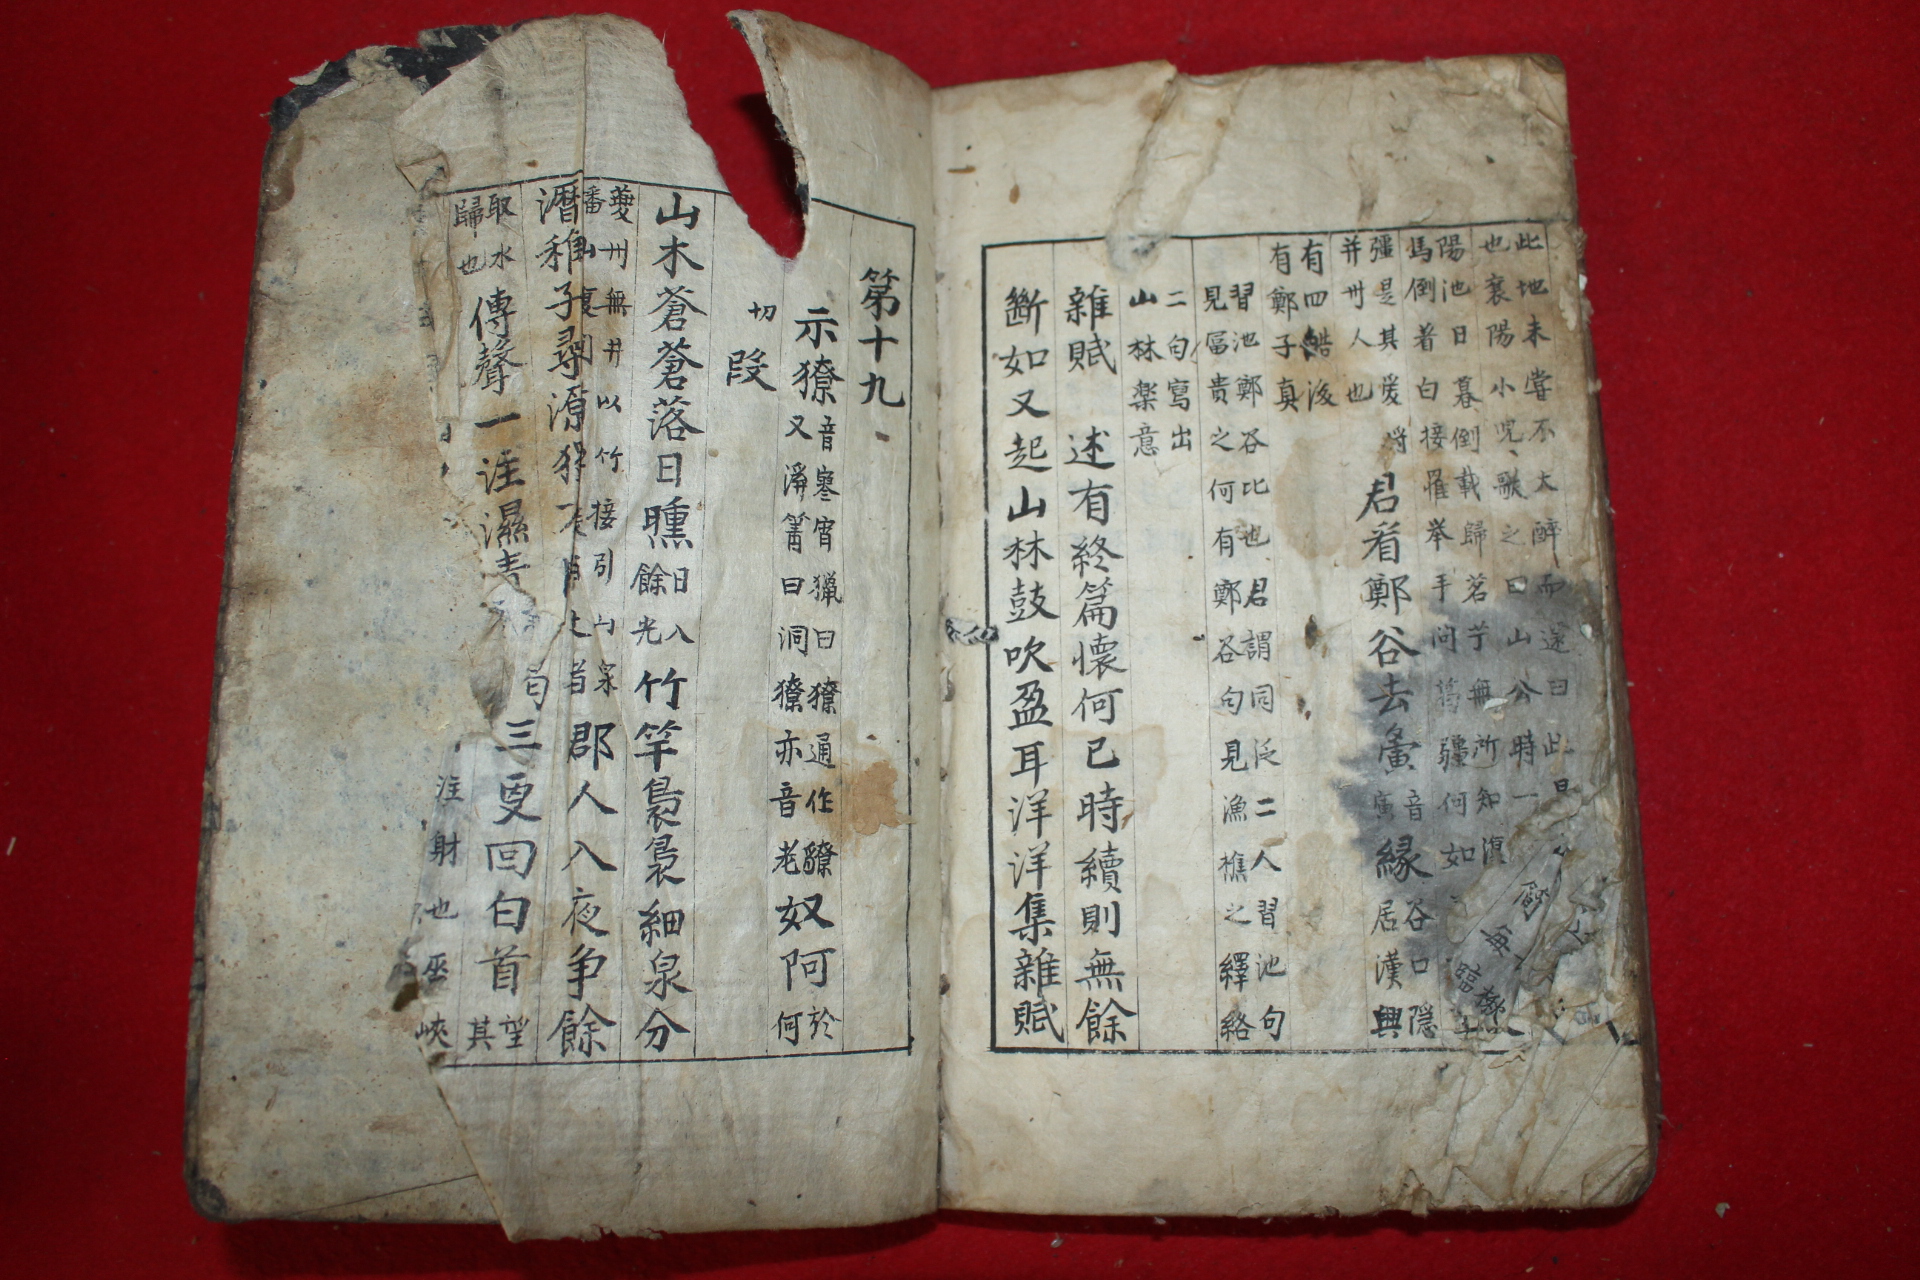 此地未嘗不大醉而還曰此
也襄陽小児歌之曰山公時一
陽池日暮倒載歸茗艼無所知復
馬倒着白接䍦举手問葛疆何如
疆是其爱将
并州人也
君看鄭谷去夤音寅緣谷口隠居漢興
有四皓後
有鄭子真
習池鄭谷比也君謂同泛二人習池句
見冨贵之何有鄭谷句見漁樵之繹絡
二句寫出
山林楽意
雜賦 述有終篇懷何已時續則無餘
斷如又起山林鼓吹盈耳洋洋集雜賦
第十九
示獠音寥宵獵曰獠通作䝤
又滰箐曰洞獠亦音老奴阿於何
切 段
山木蒼蒼落日曛日入餘光竹竿裊裊細泉分
夔州無井以竹接引山泉
郡人入夜争餘
瀝稚子尋源
取水
歸也
傳聲一注濕青
三更回白首望其
注射也巫峽